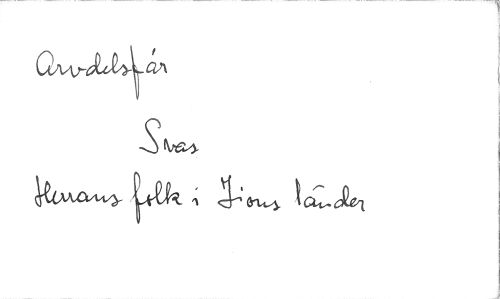 Arvdelsfår
Svas
Herrans folk i Zions länder